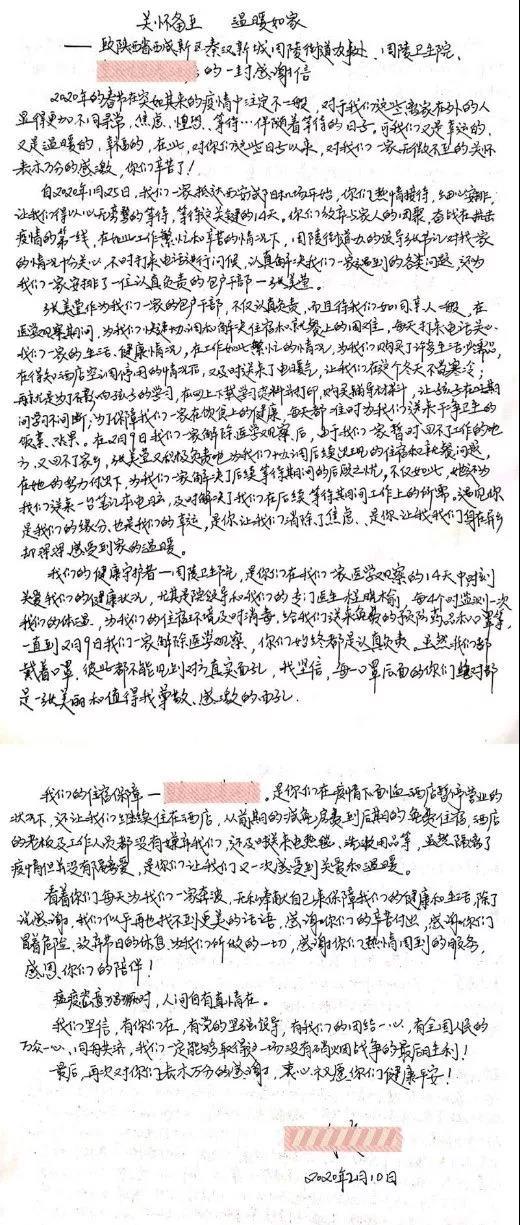 关怀备至 温暖如家
——致陕西省西咸新区秦汉新城周陵街道办事处、周陵卫生院、
的一封感谢信
2020年的春节在突如其来的疫情中注定不一般，对于我们这些离家在外的人
显得更加不同寻常，焦虑、惶恐、等待…伴随着等待的日子。可我们又是幸运的，
又是温暖的，幸福的，在此，对你们这些日子以来，对我们一家无微不至的关怀
表示万分的感激，你们辛苦了！
自2020年1月25日，我们一家抵达西安咸阳机场开始，你们热情接待，细心安排，
让我们得以心无旁骛的等待，等待这关键的14天。你们放弃与家人的团聚，奋战在抗击
疫情的第一线，在如此工作繁忙和辛苦的情况下，周陵街道办的领导张书记对我家
的情况十分关心，不时打来电话进行问候，认真解决我们一家遇到的各类问题，还为
我们一家安排了一位认真负责的包户干部—张美莹。
张美莹作为我们一家的包户干部，不仅认真负责，而且待我们如同亲人一般，在
医学观察期间，为我们快速协调和解决住宿和就餐上的困难，每天打来电话关心
我们一家的生活、健康情况，在工作如此繁忙的情况，为我们购买了许多生活必需品，
在得知酒店空调停用的情况后，又及时送来了电暖气，让我们在这个冬天不再寒冷；
再就是为了不影响孩子的学习，在网上下载学习资料并打印，购买辅导材料，让孩子在这期
间学习不间断；为了保障我们一家在饮食上的健康，每天都准时为我们送来干净卫生的
饭菜、水果。在2月9日我们一家解除医学观察后，由于我们一家暂时回不了工作的地
方，又回不了家乡，张美莹又积极负责地为我们协调后续出现的住宿和就餐问题，
在她的努力付出下，为我们一家解决了后续等待期间的后顾之忧，不仅如此，她还为
我们送来一台笔记本电脑，及时解决了我们在后续等待其间工作上的所需。遇见你
是我们的缘分，也是我们的幸运，是你让我们消除了焦虑、是你让我们身在异乡
却深深感受到家的温暖。
我们的健康守护者—周陵卫生院，是你们在我们一家医学观察的14天中时刻
关爱我们的健康状况，尤其是院领导和我们的专门医生，每4个时监测一次
我们的体温，为我们的住宿环境及时消毒，给我们送来免费的预防药品和口罩等，
一直到2月9日我们一家解除医学观察，你们始终都是认真负责。虽然我们都
戴着口罩，彼此都不能见到对方真实面孔，我坚信，每一口罩后面的你们绝对都
是一张美丽和值得我尊敬、感激的面孔。
我们的住宿保障—。是你们在疫情下面临酒店暂停营业的
状况下，还让我们继续住在酒店，从前期的减免房费到后期的免费住宿，酒店
的老板及工作人员都没有嫌弃我们，还及时送来电热毯、洗漱用品等，虽然隔离了
疫情但并没有隔离爱，是你们让我们又一次感受到关爱和温暖。
看着你们每天为我们一家奔波，无私奉献自己来保障我们的健康和生活，除了
说感谢，我们似乎再也找不到更美的话语，感谢你们的辛苦付出，感谢你们
冒着危险、放弃节日的休息为我们所做的一切，感谢你们热情周到的服务，
感恩你们的陪伴！
瘟疫蔓延时，人间自有真情在。
我们坚信，有你们在，有党的坚强领导，有我们的团结一心，有全国人民的
万众一心、同舟共济，我们一定能够取得这一场没有硝烟战争的最后胜利！
最后，再次对你们表示万分的感谢，衷心祝愿你们健康平安！
2020年2月10日